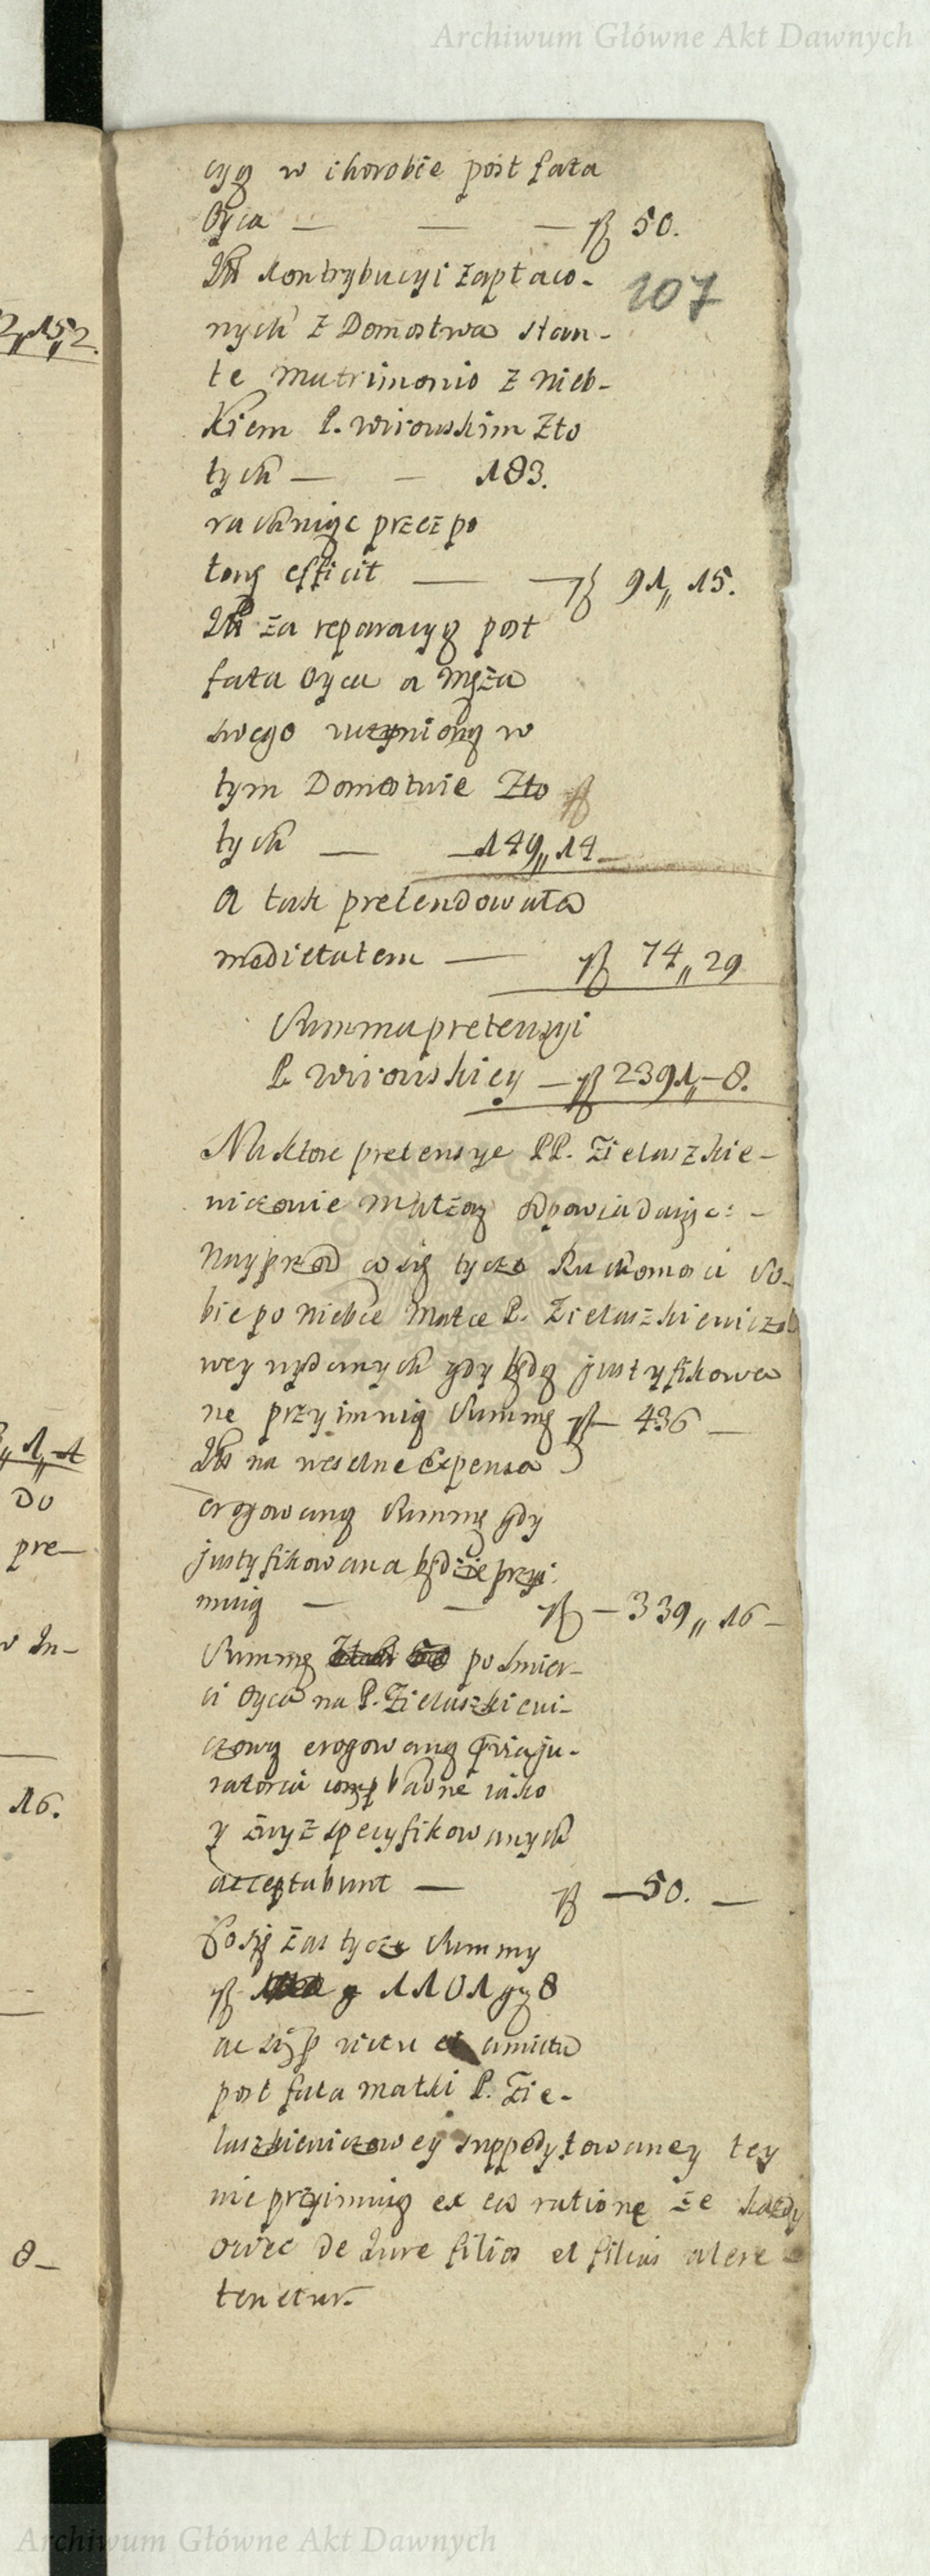 Archiwum Główne Akt Dawnych
cyą w chorobie post fata
Oyca — — — ƒl 50.
107
Itt kontrybucyi zapłaco-
nych z Domostwa stan-
te matrimonio z nieb-
kiem P. Wirowskim Zło
tych — — 183.
rachuiąc przez po
łowę efficit — — ƒl 91„ 15.
Itt za reparacyą post
fata Oyca a męża
swego uczynioną w
tym Domostwie Zło
tych — — 149„ 14 —
A tak pretendowała
medietatem — ƒl 74„ 29
Summa pretensyi
P. Wirowskiey — ƒl 2391„ – 8.
Na ktore pretensye PP. Zieluszkie-
wiczowie małżon odpowiadaiąc: -
Nayprzod co się tycze Ruchomosci So-
bie po niebce Matce P. Zieluszkiewiczo
wey wydanych gdy będą justyfikowa
ne przyimuią Summę ƒl — 436 —
Itt na weselne Expensa
erogowaną Summę gdy
justyfikowana będzie przyi
muią — — ƒl — 339„ 16 –
Summę po smier-
ci Oyca na P. Zieluszkiewi-
czową erogowaną ju-
ratoria iako
y zwyz specyfikowanych
acceptabunt — ƒl — 50. —
Co się zas tycze Summy
ƒl 1101 gr 8
victu et amictu
post fata matki P. Zie-
luszkiewiczowey suppedytowaney tey
nie przyimuią ex ea ratione że kazdy
ociec de Jure filios et filias alere
tenetur.
2„ 15„ 2.
„ 1„ 4
Do
pre—
w In-
16.
8 —
Archiwum Główne Akt Dawnych